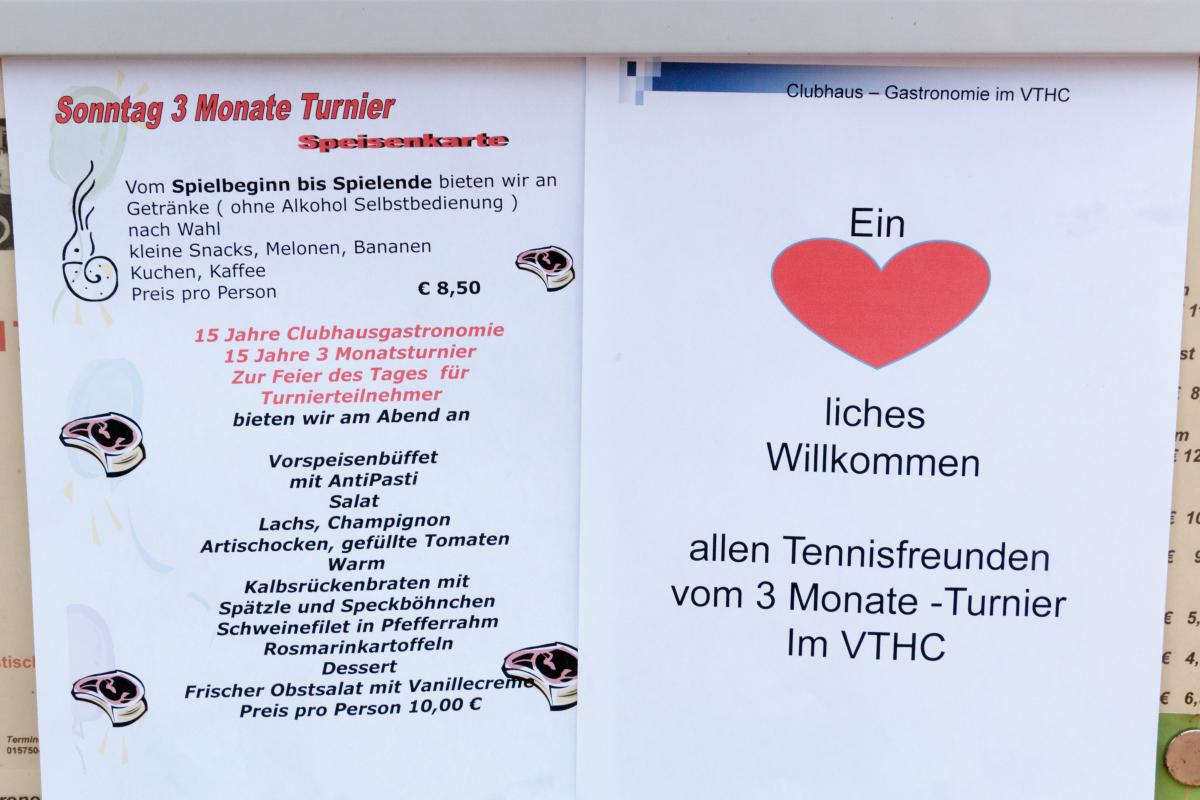 Sonntag 3 Monate Turnier
Speisenkarte
Vom Spielbeginn bis Spielende bieten wir an
Getränke ( ohne Alkohol Selbstbedienung )
nach Wahl
kleine Snacks, Melonen, Bananen
Kuchen, Kaffee
Preis pro Person € 8,50
15 Jahre Clubhausgastronomie
15 Jahre 3 Monatsturnier
Zur Feier des Tages für
Turnierteilnehmer
bieten wir am Abend an
Vorspeisenbüffet
mit AntiPasti
Salat
Lachs, Champignon
Artischocken, gefüllte Tomaten
Warm
Kalbsrückenbraten mit
Spätzle und Speckböhnchen
Schweinefilet in Pfefferrahm
Rosmarinkartoffeln
Dessert
Frischer Obstsalat mit Vanillecreme
Preis pro Person 10,00 €
Clubhaus – Gastronomie im VTHC
Ein
liches
Willkommen
allen Tennisfreunden
vom 3 Monate -Turnier
Im VTHC